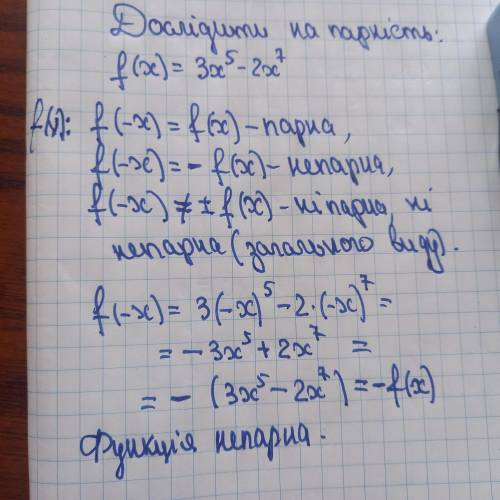 Дослідити на парність:
f(x) = 3x⁵ - 2x⁷
f(x): f(-x) = f(x) - парна,
f(-x) = - f(x) - непарна,
f(-x) ≠ ± f(x) - ні парна, ні
непарна (загального виду).
f(-x) = 3(-x)⁵ - 2·(-x)⁷ =
= - 3x⁵ + 2x⁷ =
= - (3x⁵ - 2x⁷) = -f(x)
Функція непарна.